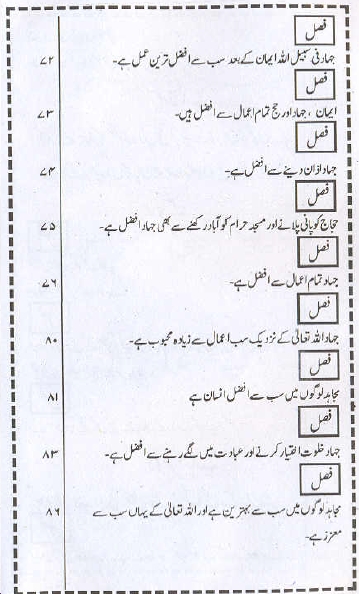 فصل
جہاد فی سبیل اللہ ایمان کے بعد سب سے افضل ترین عمل ہے۔ ۷۲
فصل
ایمان ، جہاد اور حج تمام اعمال سے افضل ہیں۔ ۷۳
فصل
جہاد اذان دینے سے افضل ہے۔ ۷۴
فصل
حجاج کو پانی پلانے اور مسجد حرام کو آباد رکھنے سے بھی جہاد افضل ہے۔ ۷۵
فصل
جہاد تمام اعمال سے افضل ہے۔ ۷۶
فصل
جہاد اللہ تعالیٰ کے نزدیک سب اعمال سے زیادہ محبوب ہے۔ ۸۰
فصل
مجاہد لوگوں میں سب سے افضل انسان ہے ۸۱
فصل
جہاد خلوت اختیار کرنے اور عبادت میں لگے رہنے سے افضل ہے۔ ۸۳
فصل
مجاہد لوگوں میں سب سے بہترین ہے اور اللہ تعالیٰ کے یہاں سب سے ۸۶
معزز ہے۔